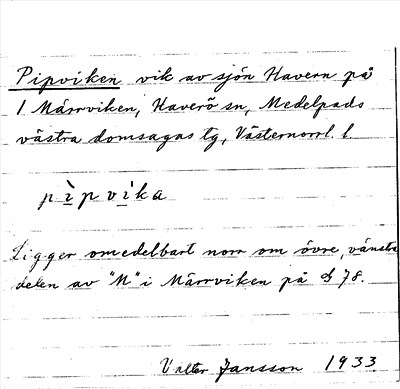 Pipviken vik av sjön Havern på
1 Märrviken, Haverö sn, Medelpads
västra domsagas tg, Västernorrl. l.
pìpvìka
Ligger omedelbart norr om övre, vänstra
delen av "M" i Märrviken på S 78.
Valter Jansson 1933